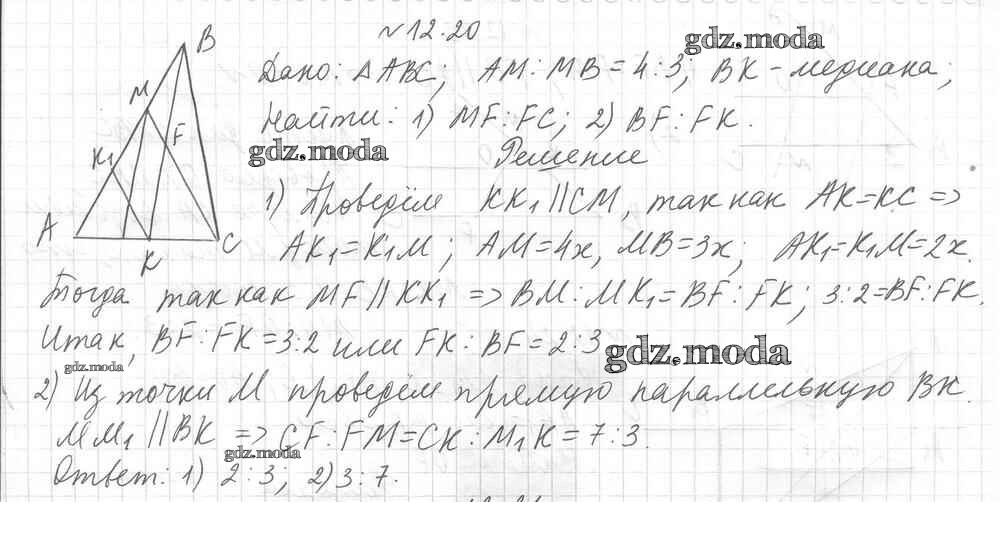 №12.20
gdz.moda
Дано: △ABC; AM:MB=4:3; BK-медиана;
Найти: 1) MF:FC; 2) BF:FK.
gdz.moda
Решение
1) Проведём KK₁||CM, так как AK=KC =>
AK₁=K₁M; AM=4x, MB=3x; AK₁=K₁M=2x.
Тогда так как MF||KK₁ => BM:MK₁=BF:FK; 3:2=BF:FK.
Итак, BF:FK=3:2 или FK:BF=2:3
gdz.moda
gdz.moda
2) Из точки M проведём прямую параллельную BK.
MM₁||BK => CF:FM=CK:M₁K=7:3.
gdz.moda
Ответ: 1) 2:3; 2) 3:7.
gdz.moda
B
M
F
K₁
A
K
C